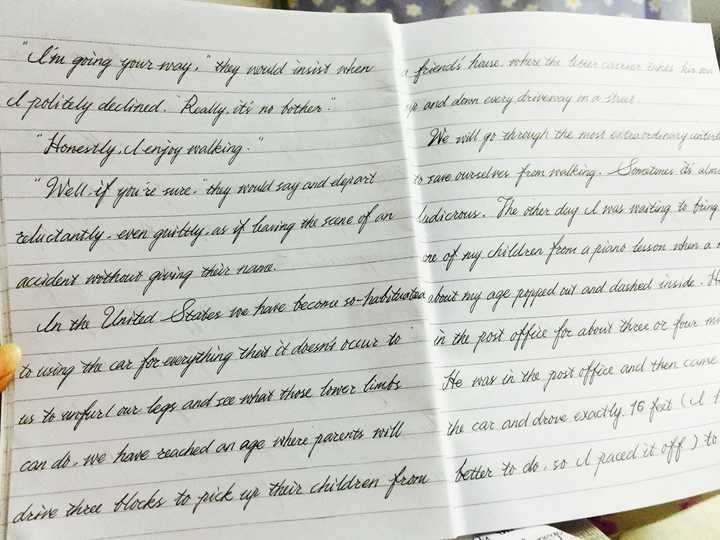 "I'm going your way," they would insist when
I politely declined. "Really, it's no bother."
"Honestly, I enjoy walking."
"Well, if you're sure," they would say and depart
reluctantly, even guiltily, as if leaving the scene of an
accident without giving their name.
In the United States we have become so-habituated
to using the car for everything that it doesn't occur to
us to unfurl our legs and see what those lower limbs
can do. we have reached an age where parents will
drive three blocks to pick up their children from
a friend's house, where the letter carrier takes his van
up and down every driveway on a street.
We will go through the most extraordinary
to save ourselves from walking. Sometimes it's
ludicrous. The other day I was waiting to bring
one of my children from a piano lesson when a
about my age popped out and dashed inside.
in the post office for about three or four
He was in the post office and then came
the car and drove exactly 16 feet (I
better to do, so I paced it off) to